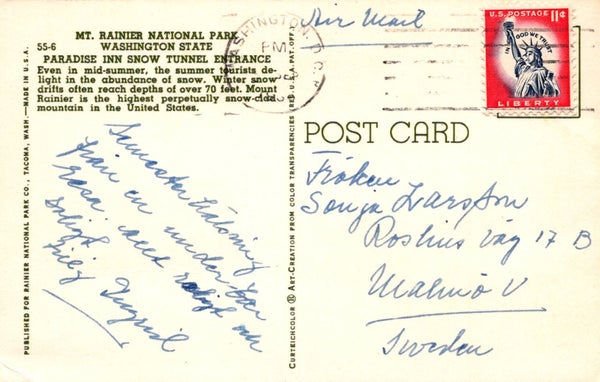 MT. RAINIER NATIONAL PARK
55-6 WASHINGTON STATE
PARADISE INN SNOW TUNNEL ENTRANCE
Even in mid-summer, the summer tourists de-
light in the abundance of snow. Winter snow
drifts often reach depths of over 70 feet. Mount
Rainier is the highest perpetually snow-clad
mountain in the United States.
Semester hälsning
från en underbar
resa med
Ingrid
PUBLISHED FOR RAINIER NATIONAL PARK CO., TACOMA, WASH.—MADE IN U.S.A.
CURTEICHCOLOR ® ART-CREATION FROM COLOR TRANSPARENCIES REG. U.S.A. PAT. OFF.
Air Mail
WASHINGTON, D.C.
PM
U.S. POSTAGE 11¢
IN GOD WE TRUST
LIBERTY
POST CARD
Fröken
Sonja Larsson
Roslins väg 17 B
Malmö V
Sweden